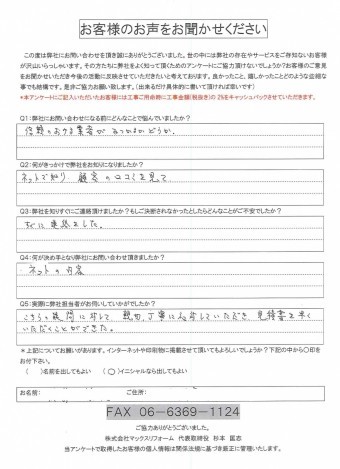 お客様のお声をお聞かせください
この度は弊社にお問い合わせを頂き誠にありがとうございます。世の中には弊社の存在やサービスをご存知ないお客様
が沢山いらっしゃいます。その方たちに弊社をよく知って頂くためのアンケートにご協力頂けないでしょうか?お客様のご意見
をお聞かせいただき今後の活動に反映させていただきたいと考えております。良かったこと、嬉しかったことどのような些細な
事でも結構です。是非ご協力お願い致します。(出来るだけ具体的に書いて頂ければ幸いです)
*本アンケートにご記入いただいたお客様には工事ご用命時に工事金額(税抜き)の2%をキャッシュバックさせていただきます。
Q1:弊社にお問い合わせになる前にどんなことで悩んでいましたか?
信頼のおける業者が みつかるかどうか。
Q2:何がきっかけで弊社をお知りになりましたか?
ネットで知り 顧客の口コミを見て
Q3:弊社を知りすぐにご連絡頂けましたか?もしご決断されなかったとしたらどんなことがご不安でしたか?
すぐに連絡ました。
Q4:何が決め手となり弊社にお問い合わせ頂きましたか?
ネットの内容
Q5:実際に弊社担当者がお伺いしていかがでしたか?
こちらの質問に対して 親切、丁寧に応対していただき 見積書も早く
いただくことができた。
*上記についてお願いがあります。インターネットや印刷物に掲載させて頂いてもよろしいでしょうか?下記の中から〇印を
お付け下さい。
( )名前を出してもよい (〇)イニシャルなら出してもよい
お名前: ご住所:
FAX 06-6369-1124
ご協力ありがとうございました。
株式会社マックスリフォーム 代表取締役 杉本 匡志
当アンケートで取得したお客様の個人情報は関係法規に基づき厳正に管理いたします。